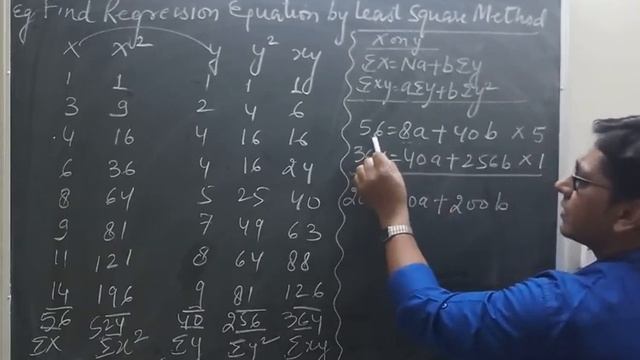 Eg Find Regression Equation by Least Square Method
x x² y y² xy
1 1 1 1 1
3 9 2 4 6
4 16 4 16 16
6 36 4 16 24
8 64 5 25 40
9 81 7 49 63
11 121 8 64 88
14 196 9 81 126
56 524 40 256 364
Σx Σx² Σy Σy² Σxy
X on y
Σx=Na+bΣy
Σxy=aΣy+bΣy²
56=8a+40b ×5
=40a+256b ×1
a+200b